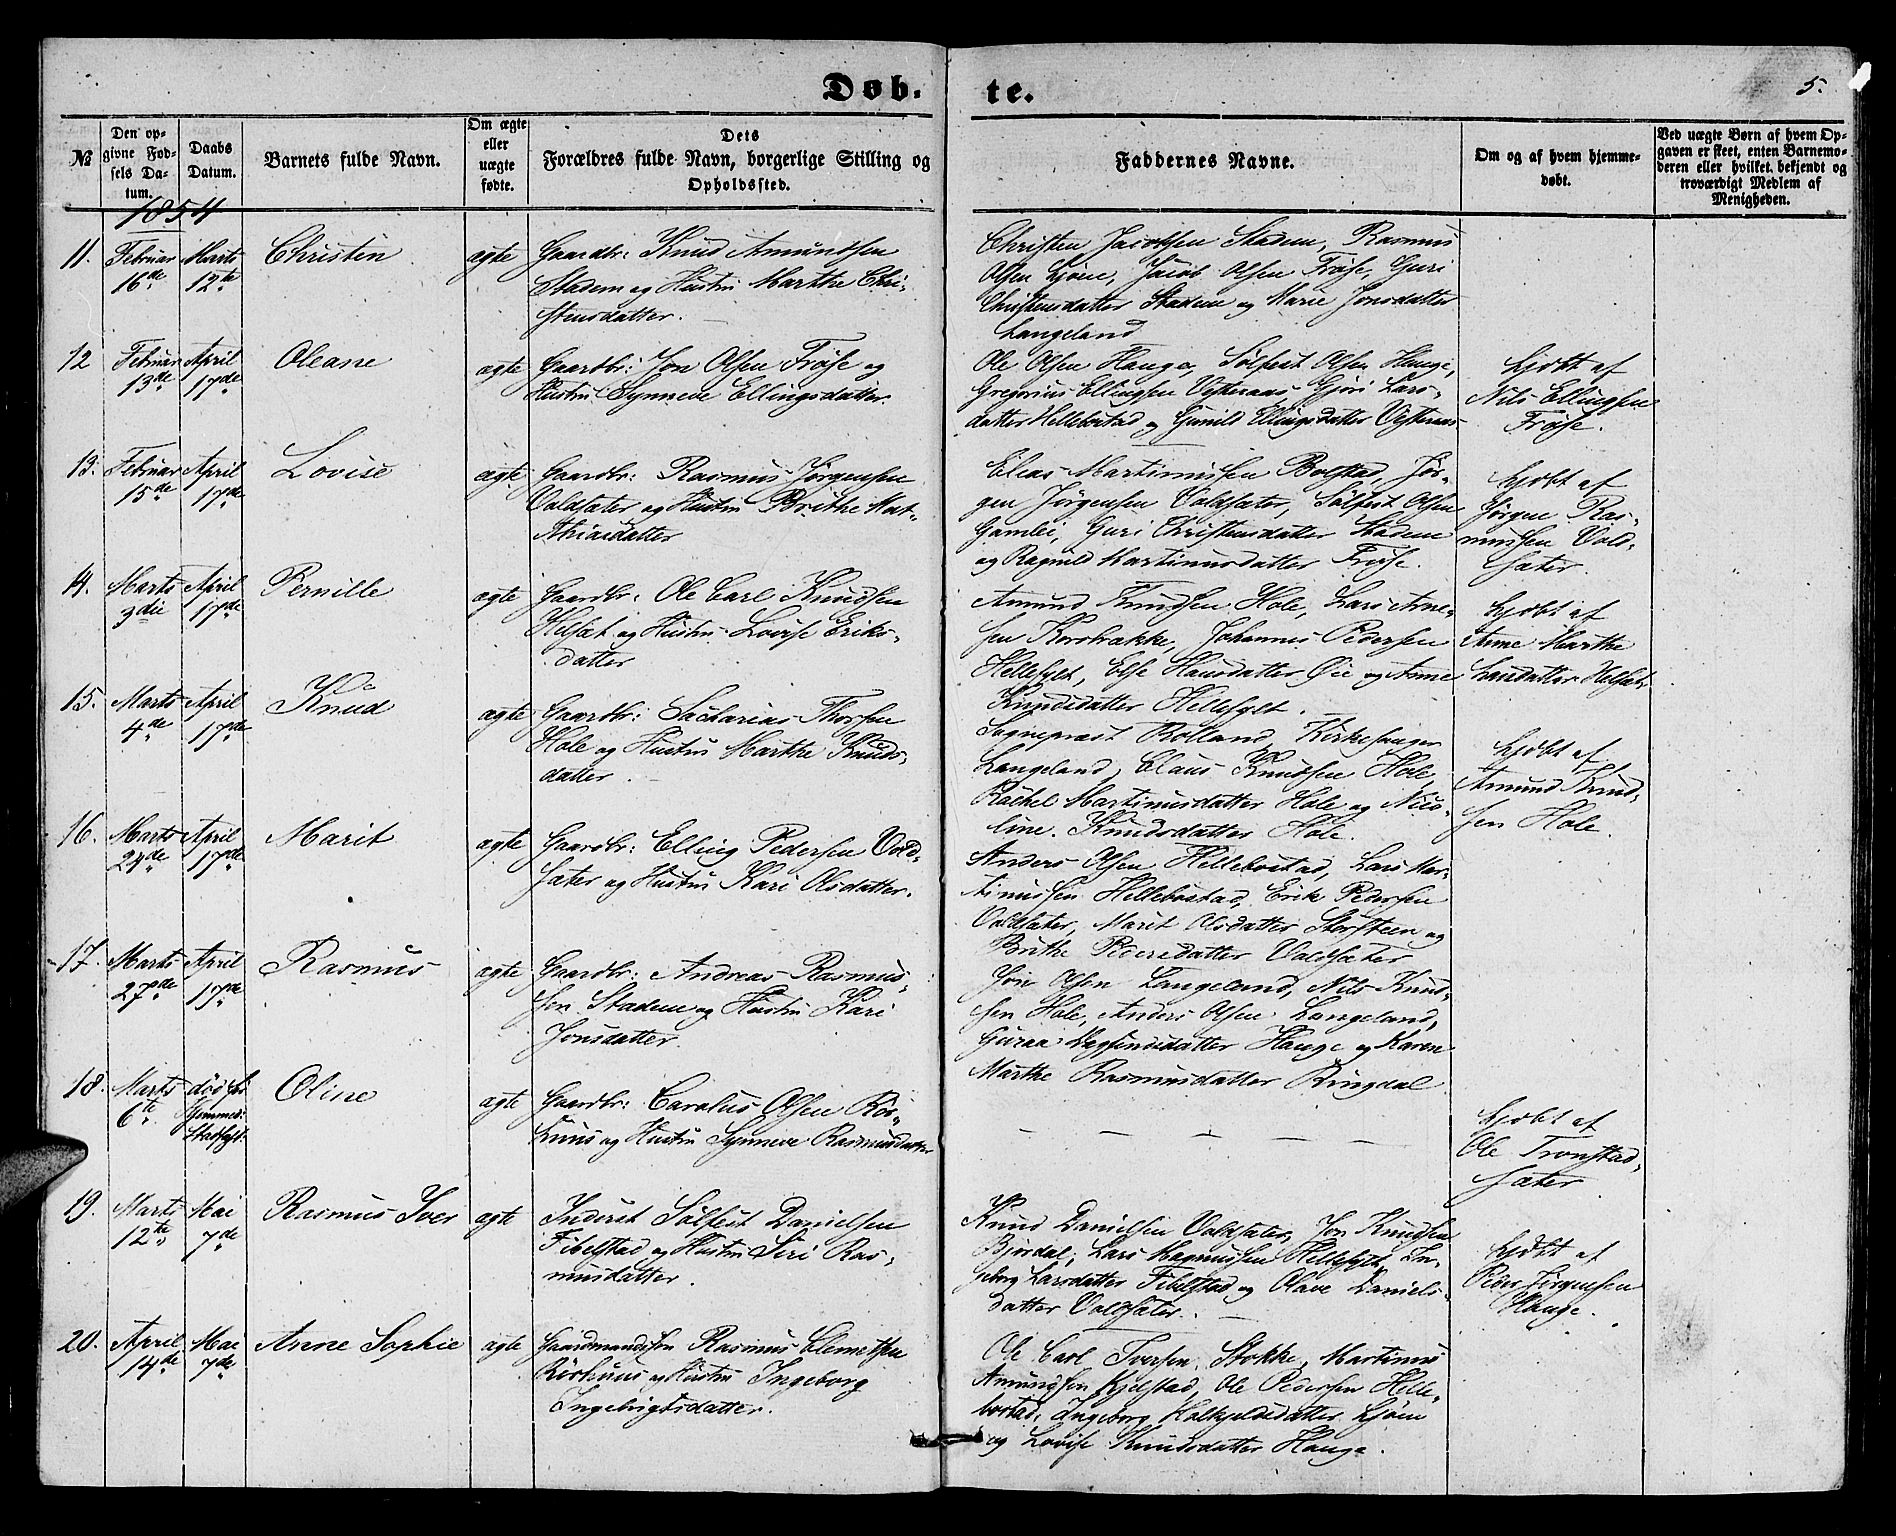 Døb. te.
5.
№
Den op-
givne Fød-
sels Da-
tum.
Daabs
Datum.
Barnets fulde Navn.
Om ægte
eller
uægte
fødte.
Dets
Forældres fulde Navn, borgerlige Stilling og
Opholdssted.
Faddernes Navne.
Om og af hvem hjemme-
døbt.
Ved uægte Børn af hvem Op-
gaven er skeet, enten Barnemo-
deren eller hvilket bekjendt og
troværdigt Medlem af
Menigheden.
1854
11.
Februar
16de
Marts
12te
Christen
ægte
Gaardbr: Knud Amundsen
Stadem og Hustru Marthe Chri-
stensdatter.
Christen Jacobsen Stadem, Rasmus
Olsen Ljøen, Jacob Olsen Frøse, Guri
Christensdatter Stadem og Marie Jonsdatter
Langeland
12
Februar
13de
April
17de
Oleane
ægte
Gaardbr: Jon Olsen Frøse og
Hustru Synneve Ellingsdatter.
Ole Olsen Hauge, Sølfest Olsen Hauge,
Gregorius Ellingsen Vesteraas, Gjøri Lars-
datter Hellebostad og Gunild Ellingsdatter Vesteraas
hjdbt af
Nils Ellingsen
Frøse.
13.
Februar
15de
April
17de
Lovise
ægte
Gaardbr: Rasmus Jørgensen
Voldsæter og Hustru Brithe Mat-
thiasdatter
Elias Martinussen Bolstad, Jør-
gen Jørgensen Voldsæter, Sølfest Olsen
Gamlei, Guri Christensdatter Stadem
og Ragnild Martinusdatter Frøse.
hjdbt af
Jørgen Ras-
mussen Vold-
sæter.
14.
Marts
3die
April
17de
Pernille
ægte
Gaardbr: Ole Carl Knudsen
Helsæt og Hustru Lovise Eriks-
datter
Amund Knudsen Hole, Lars Arne-
sen Korsbrække, Johannes Pedersen
Hellesylt, Else Hansdatter Øie og Anne
Knudsdatter Hellesylt.
hjdbt af
Anne Marthe
Larsdatter Helsæt.
15.
Marts
4de
April
17de
Knud
ægte
Gaardbr: Sacharias Thorsen
Hole og Hustru Marthe Knuds-
datter.
Sognepræst Rolland, Kirkesanger
Langeland, Elaus Knudsen Hole,
Rachel Martinusdatter Hole og Nico-
line Knudsdatter Hole.
hjdbt af
Amund Knud-
sen Hole.
16.
Marts
24de
April
17de
Marit
ægte
Gaardbr: Elling Pedersen Vold-
sæter og Hustru Kari Olsdatter.
Anders Olsen Hellebostad, Lars Mar-
tinussen Hellebostad, Erik Pedersen
Voldsæter, Marit Olsdatter Storsteen og
Brithe Pedersdatter Voldsæter
17.
Marts
27de
April
17de
Rasmus
ægte
Gaardbr: Andreas Rasmus-
sen Stadem og Hustru Kari
Jonsdatter.
Jon Olsen Langeland, Nils Knud-
sen Hole, Anders Olsen Langeland,
Guraa Dagfindsdatter Hauge og Karen
Marthe Rasmusdatter Ringdal
18.
Marts
6te
død før
Oline
ægte
Gaardbr: Carolus Olsen Røs-
huus og Hustru Synneve Rasmusdatter
– – – – –
hjdbt af
Ole Tronstad-
sæter.
19.
Marts
12te
Mai
7de
Rasmus Iver
ægte
Inderst Sølfest Danielsen
Fibelstad og Hustru Siri Ras-
musdatter.
Knud Danielsen Voldsæter, Jon Knudsen
Bjørdal, Lars Magnussen Hellesylt, In-
geborg Larsdatter Fibelstad og Olave Daniels-
datter Voldsæter.
hjdbt af
Peder Jørgensen
Hauge.
20.
April
14de
Mai
7de
Anne Sophie
ægte
Gaardmandssøn Rasmus Clemetsen
Røshuus og Hustru Ingeborg
Ingebrigtsdatter.
Ole Carl Iversen Stokke, Martinus
Amundsen Kjelstad, Ole Pedersen Helle-
bostad, Ingeborg Ljøen
og Lovise Knudsdatter Hauge.